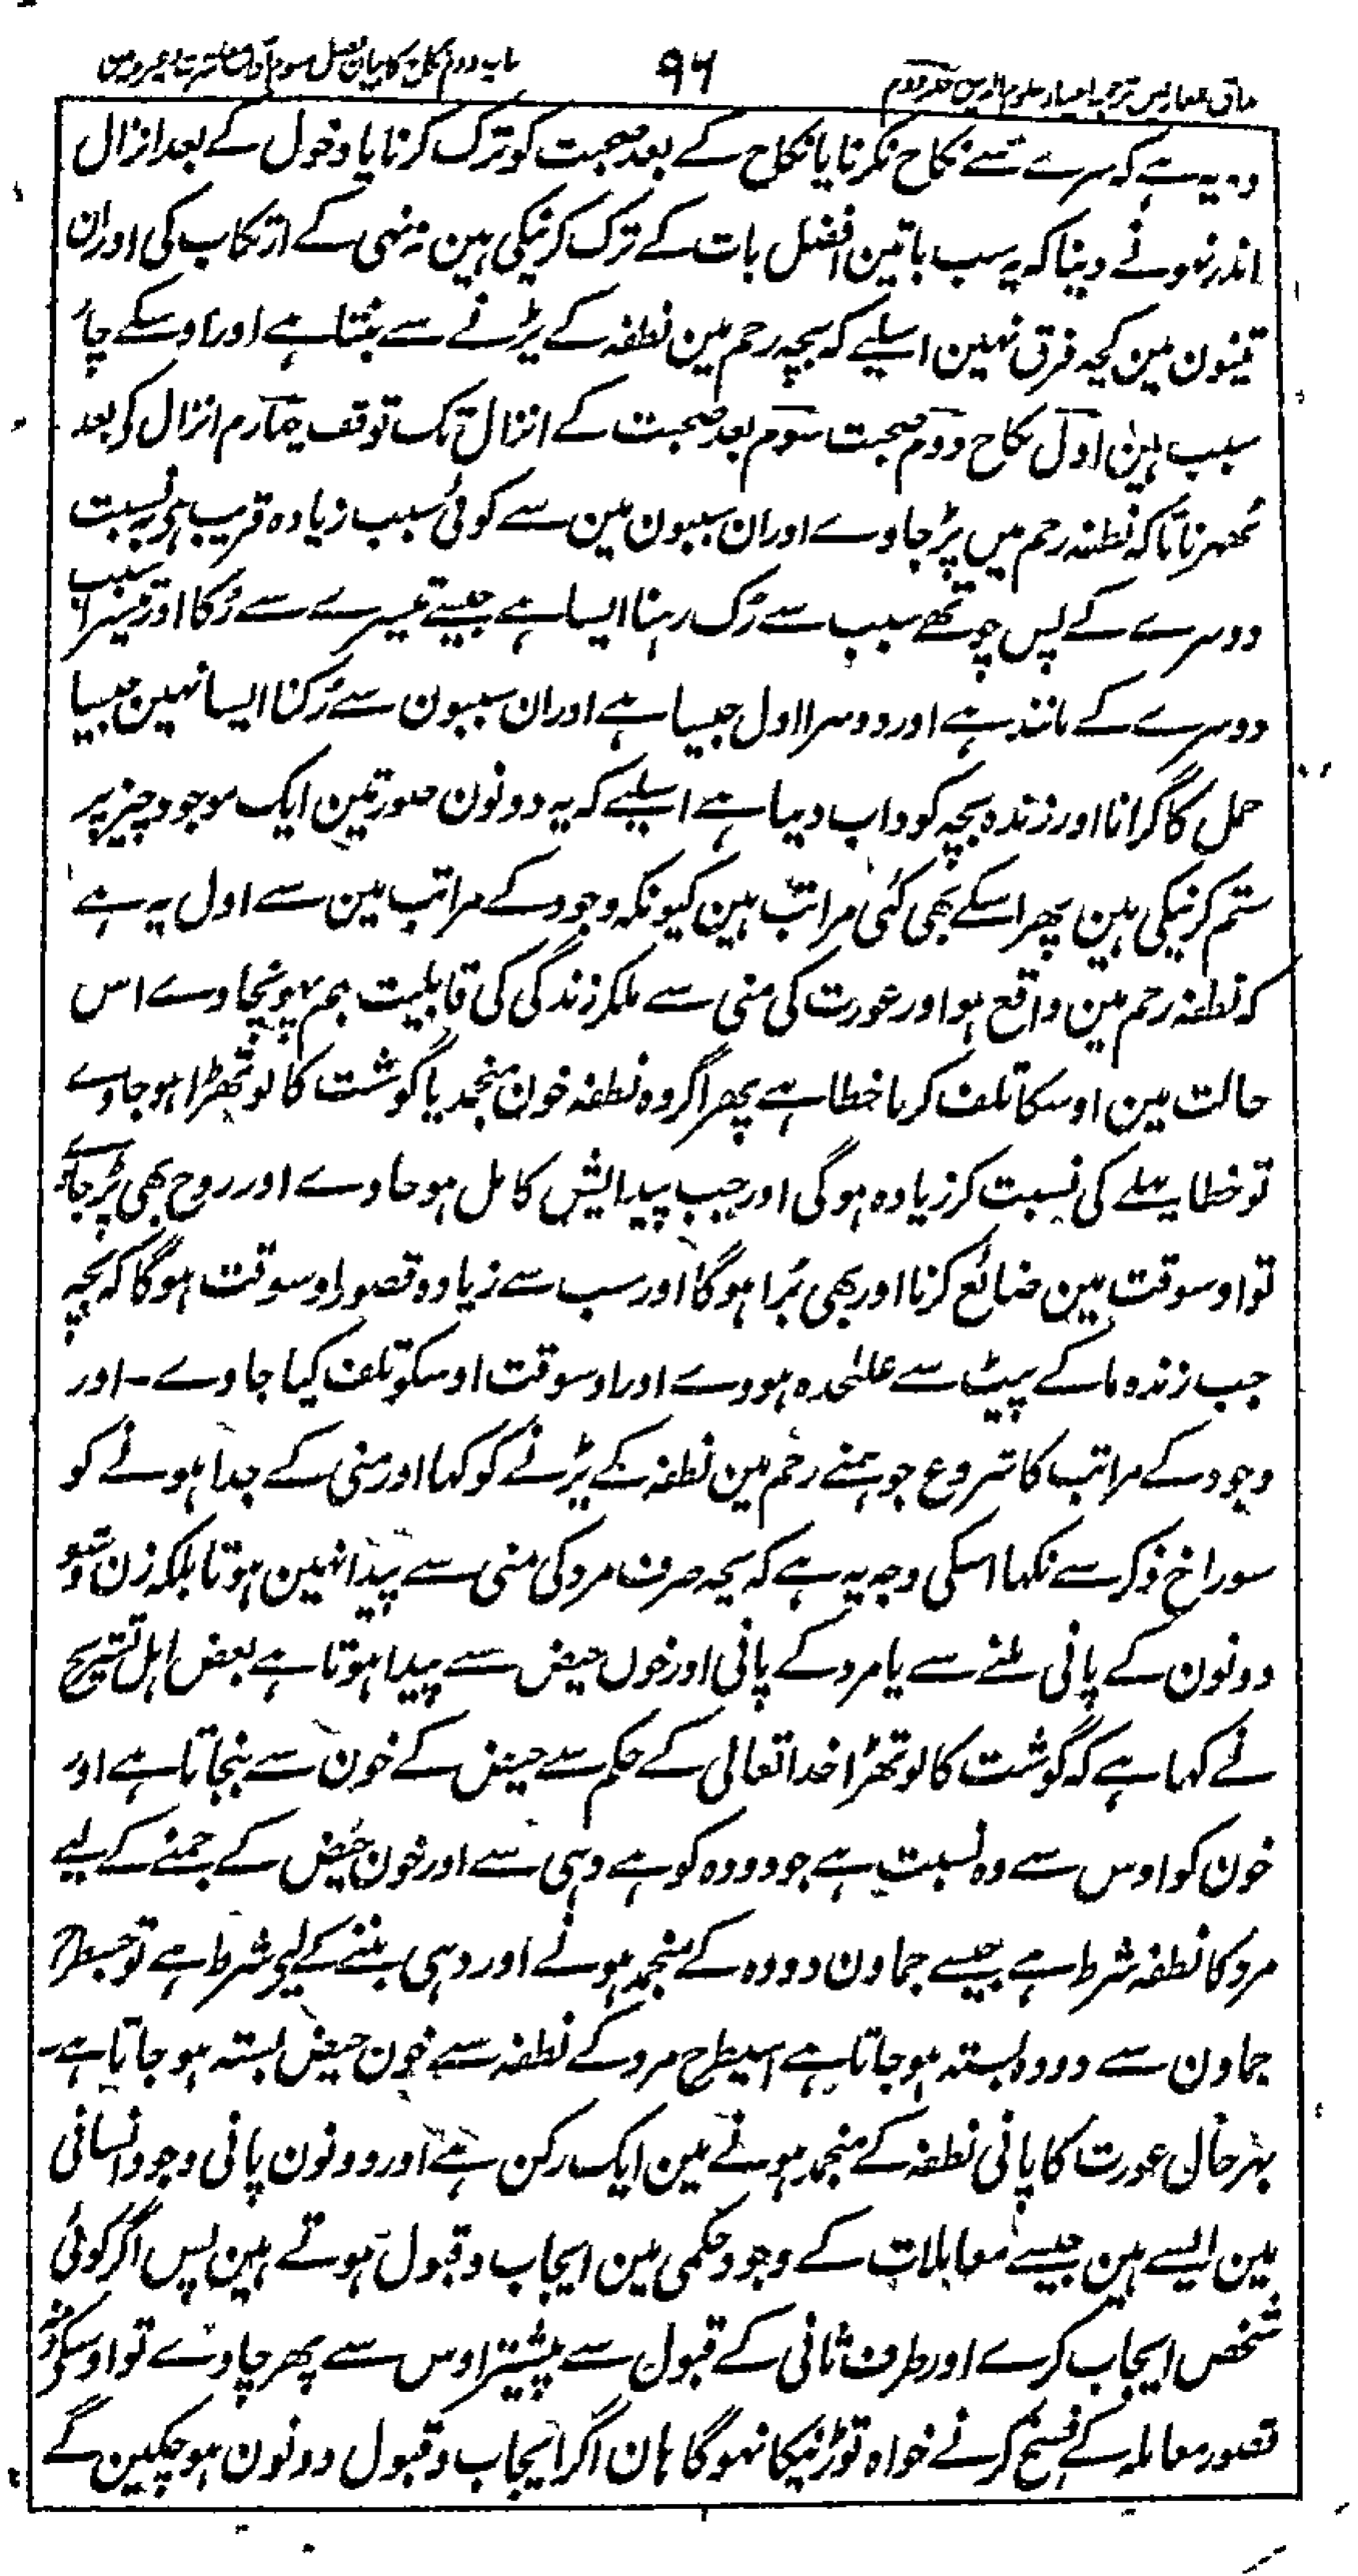 مذاق العارفین ترجمہ احیاء علوم الدین جلد دوم
۹۶
باب دوم نکاح کا بیان فصل سوم آداب معاشرت
وہ یہ ہے کہ سرے سے نکاح نکرنا یا نکاح کے بعد صحبت کو ترک کرنا یا دخول کے بعد انزال
اندر نہونے دینا کہ یہ سب باتین افضل بات کے ترک کرنیکی ہین نہ منہی کے ارتکاب کی اور ان
تینون مین کچہ فرق نہین اسلیے کہ بچہ رحم مین نطفہ کے پڑنے سے بنتا ہے اور اوسکے چار
سبب ہین اول نکاح دوم صحبت سوم بعد صحبت کے انزال تک توقف چہارم انزال کے بعد
ٹھہرنا تاکہ نطفہ رحم میں پڑجاوے اور ان سببون مین سے کوئی سبب زیادہ قریب ہے بہ نسبت
دوسرے کے پس چوتھے سبب سے رُک رہنا ایسا ہے جیسے تیسرے سے رُکا اور تیسرا سبب
دوسرے کے مانند ہے اور دوسرا اول جیسا ہے اور ان سببون سے رُکنا ایسا نہین جیسا
حمل کا گرانا اور زندہ بچہ کو داب دینا ہے اسلیے کہ یہ دونون صورتین ایک موجود چیز پر
ستم کرنیکی ہین پھر اسکے بھی کئی مراتب ہین کیونکہ وجود کے مراتب مین سے اول یہ ہے
کہ نطفہ رحم مین واقع ہو اور عورت کی منی سے ملکر زندگی کی قابلیت بہم پہونچاوے اس
حالت مین اوسکا تلف کرنا خطا ہے پھر اگر وہ نطفہ خون منجمد یا گوشت کا لوتھڑا ہوجاوے
تو خطا پہلے کی نسبت کر زیادہ ہوگی اور جب پیدایش کامل ہوجاوے اور روح بھی پڑجاوے
تو اوسوقت مین ضائع کرنا اور بھی بُرا ہوگا اور سب سے زیادہ قصور اوسوقت ہوگا کہ بچہ
جب زندہ ماکے پیٹ سے علٰحدہ ہووے اور اوسوقت اوسکو تلف کیا جاوے ۔ اور
وجود کے مراتب کا شروع جو ہمنے رحم مین نطفہ کے پڑنے کو کہا اور منی کے جدا ہونے کو
سوراخ ذکر سے نکہا اسکی وجہ یہ ہے کہ بچہ صرف مرد کی منی سے پیدا نہین ہوتا بلکہ زن و شو
دونون کے پانی ملنے سے یا مرد کے پانی اور خون حیض سے پیدا ہوتا ہے بعض اہل تشریح
نے کہا ہے کہ گوشت کا لوتھڑا خدا تعالی کے حکم سے حیض کے خون سے بنجاتا ہے اور
خون کو اوس سے وہ نسبت ہے جو دودہ کو ہے دہی سے اور خون حیض کے جمنے کے لیے
مرد کا نطفہ شرط ہے جیسے جماون دودہ کے منجمد ہونے اور دہی بننے کے لیے شرط ہے تو جسطرح
جماون سے دودہ بستہ ہوجاتا ہے اسیطرح مرد کے نطفہ سے خون حیض بستہ ہوجاتا ہے ۔
بہرحال عورت کا پانی نطفہ کے منجمد ہونے مین ایک رکن ہے اور دونون پانی وجود انسانی
مین ایسے ہین جیسے معاملات کے وجود حکمی مین ایجاب و قبول ہوتے ہین پس اگر کوئی
شخص ایجاب کرے اور طرف ثانی کے قبول سے پیشتر اوس سے پھر جاوے تو اوسکے ذمہ
قصور معاملہ کے فسخ کرنے خواہ توڑنیکا نہوگا ہان اگر ایجاب و قبول دونون ہو چکین گے